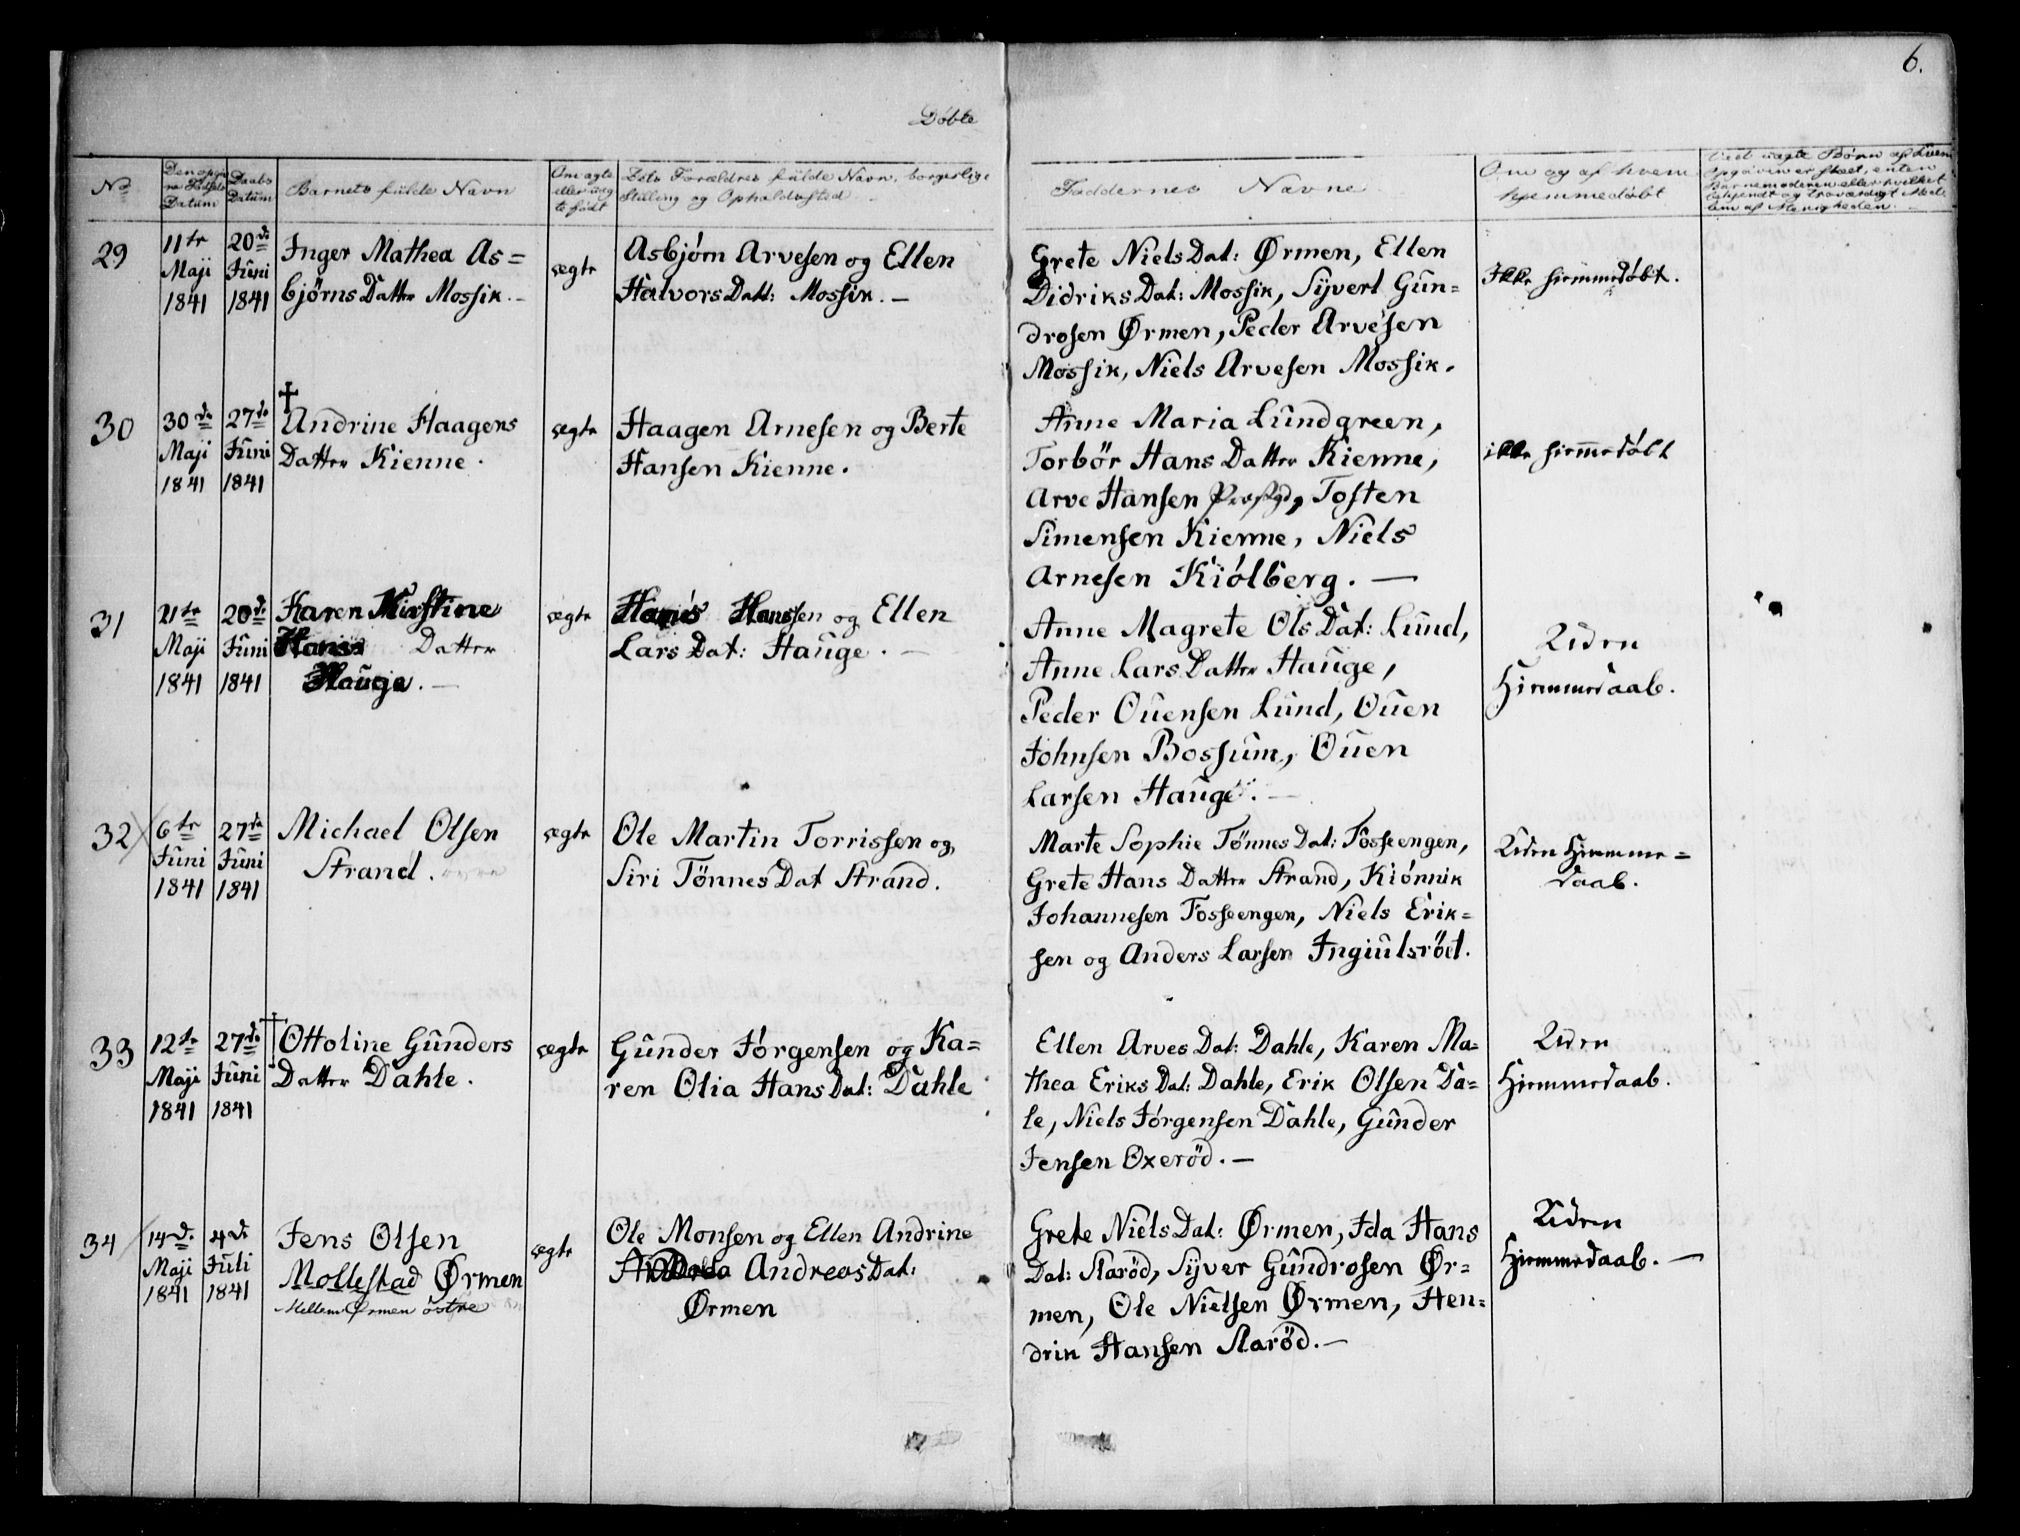 6.
Døbte
No
Den opgiv-
ne Fødsels
Datum
Daabs
Datum
Barnets fulde Navn
Om ægte
eller uæg-
te født
Dets Forældres fulde Navn, borgerlige
Stilling og Opholdssted
Faddernes Navne
Om og af hvem
hjemmedøbt
Ved uægte Børn af hvem
Opgaven er skeet, enten
Barnemoderen eller hvilket
bekjendt og troværdigt Med-
lem af Menigheden.
29
11te
Maji
1841
20de
Juni
1841
Inger Mathea As=
bjørns Datter Mossik. -
ægte
Asbjørn Arvesen og Ellen
Halvors Datt: Mossik. -
Grete Niels Dat: Ørmen, Ellen
Didriks Dat: Mossik, Syvert Gun=
drosen Ørmen, Peder Arvesen
Mossik, Niels Arvesen Mossik.
Ikke hiemmedøbt.
30
30de
Maji
1841
27de
Juni
1841
†
Andrine Haagens
Datter Kienne.
ægte
Haagen Arnesen og Berte
Hansen Kienne.
Anne Maria Lundgreen,
Torbör Hans Datter Kienne,
Arve Hansen Tosten
Simensen Kienne, Niels
Arnesen Kiölberg. -
ikke hiemmedøbt
31
21te
Maji
1841
20de
Juni
1841
Karen Kirstine
Hans Datter
Hauge. -
ægte
Hans Hanssen og Ellen
Lars Dat: Hauge. -
Anne Magrete Ols Dat: Lund,
Anne Lars Datter Hauge,
Peder Ouensen Lund, Ouen
Johnsen Bossum, Ouen
Larsen Hauge. -
Uden
Hiemmedaab.
32
6te
Juni
1841
27de
Juni
1841
Michael Olsen
Strand.
ægte
Ole Martin Torrissen og
Siri Tönnes Dat Strand.
Marte Sophie Tönnes Dat: Fosseengen,
Grete Hans Datter Strand, Kiönnik
Johannesen Fosseengen, Niels Erik=
sen og Anders Larsen Ingiulsröd.
Uden Hiemme=
daab.
33
12te
Maji
1841
27de
Juni
1841
†
Ottoline Gunders
Datter Dahle.
ægte
Gunder Jörgensen og Ka=
ren Olia Hans Dat: Dahle
Ellen Arves Dat: Dahle, Karen Ma=
thea Eriks Dat: Dahle, Erik Olsen Da=
le, Niels Jörgensen Dahle, Gunder
Jensen Oxeröd. -
Uden
Hiemmedaab.
34
14de
Maji
1841
4de
Juli
1841
Jens Olsen
Mollestad Ørmen
Mellem Ørmen östre
ægte
Ole Monsen og Ellen Andrine
Andreas Dat:
Ørmen
Grete Niels Dat: Ørmen, Ida Hans
Dat: Slaröd, Syver Gundrosen Ør=
men, Ole Nielsen Ørmen, Hen=
drik Hansen Slaröd. -
Uden
Hiemmedaab. -